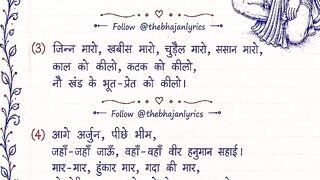 Follow @thebhajanlyrics
(3) जिन्न मारो, खबीस मारो, चुड़ैल मारो, ससान मारो,
काल को कीलो, कटक को कीलो,
नौ खंड के भूत-प्रेत को कीलो।
Follow @thebhajanlyrics
(4) आगे अर्जुन, पीछे भीम,
जहाँ-जहाँ जाऊँ, वहाँ-वहाँ वीर हनुमान सहाई।
मार-मार, हुंकार मार, गदा की मार,